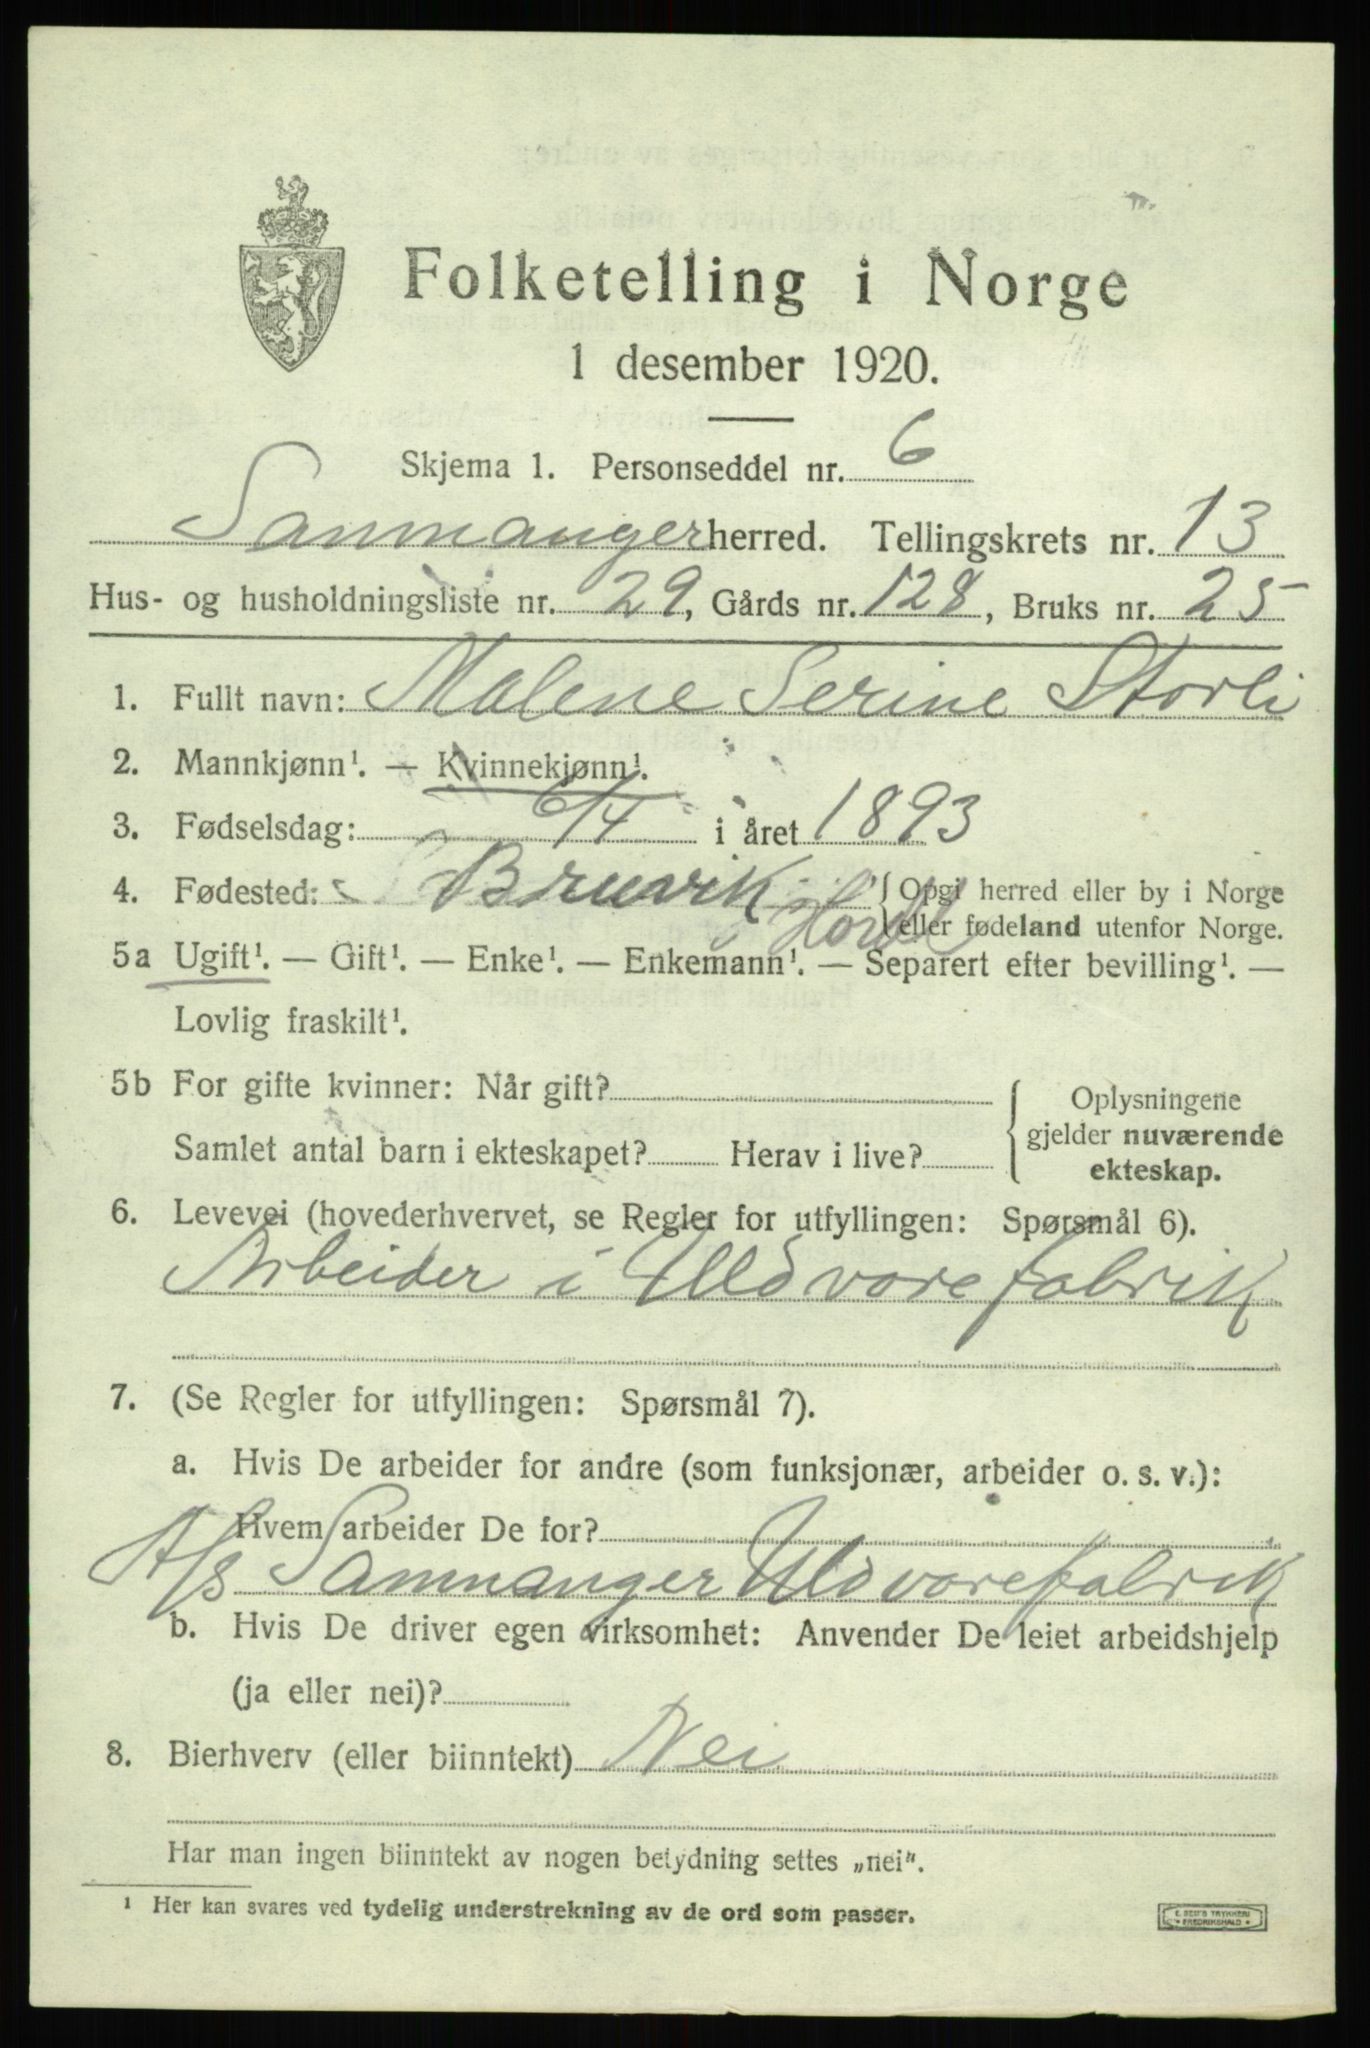 Folketelling i Norge
1 desember 1920.
Skjema 1. Personseddel nr. 6
Sanmanger herred. Tellingskrets nr. 13
Hus- og husholdningsliste nr. 29, Gårds nr. 128, Bruks nr. 25
1. Fullt navn: Malene Serine Storli
2. Mannkjønn¹. — Kvinnekjønn¹.
3. Fødselsdag: 6/4 i året 1893
4. Fødested: Bruvik Hordl {Opgi herred eller by i Norge
eller fødeland utenfor Norge.
5a Ugift¹. — Gift¹. — Enke¹. — Enkemann¹. — Separert efter bevilling¹. —
Lovlig fraskilt¹.
5b For gifte kvinner: Når gift? { Oplysningene
gjelder nuværende
Samlet antal barn i ekteskapet? Herav i live? ekteskap.
6. Levevei (hovederhvervet, se Regler for utfyllingen: Spørsmål 6).
Arbeider i Uldvarefabrik
7. (Se Regler for utfyllingen: Spørsmål 7).
a. Hvis De arbeider for andre (som funksjonær, arbeider o. s. v.):
Hvem arbeider De for?
A/s Samnanger Uldvarefabrik
b. Hvis De driver egen virksomhet: Anvender De leiet arbeidshjelp
(ja eller nei)?
8. Bierhverv (eller biinntekt) Nei
Har man ingen biinntekt av nogen betydning settes „nei".
¹ Her kan svares ved tydelig understrekning av de ord som passer.
E. SEM'S TRYKKERI
FREDRIKSHALD